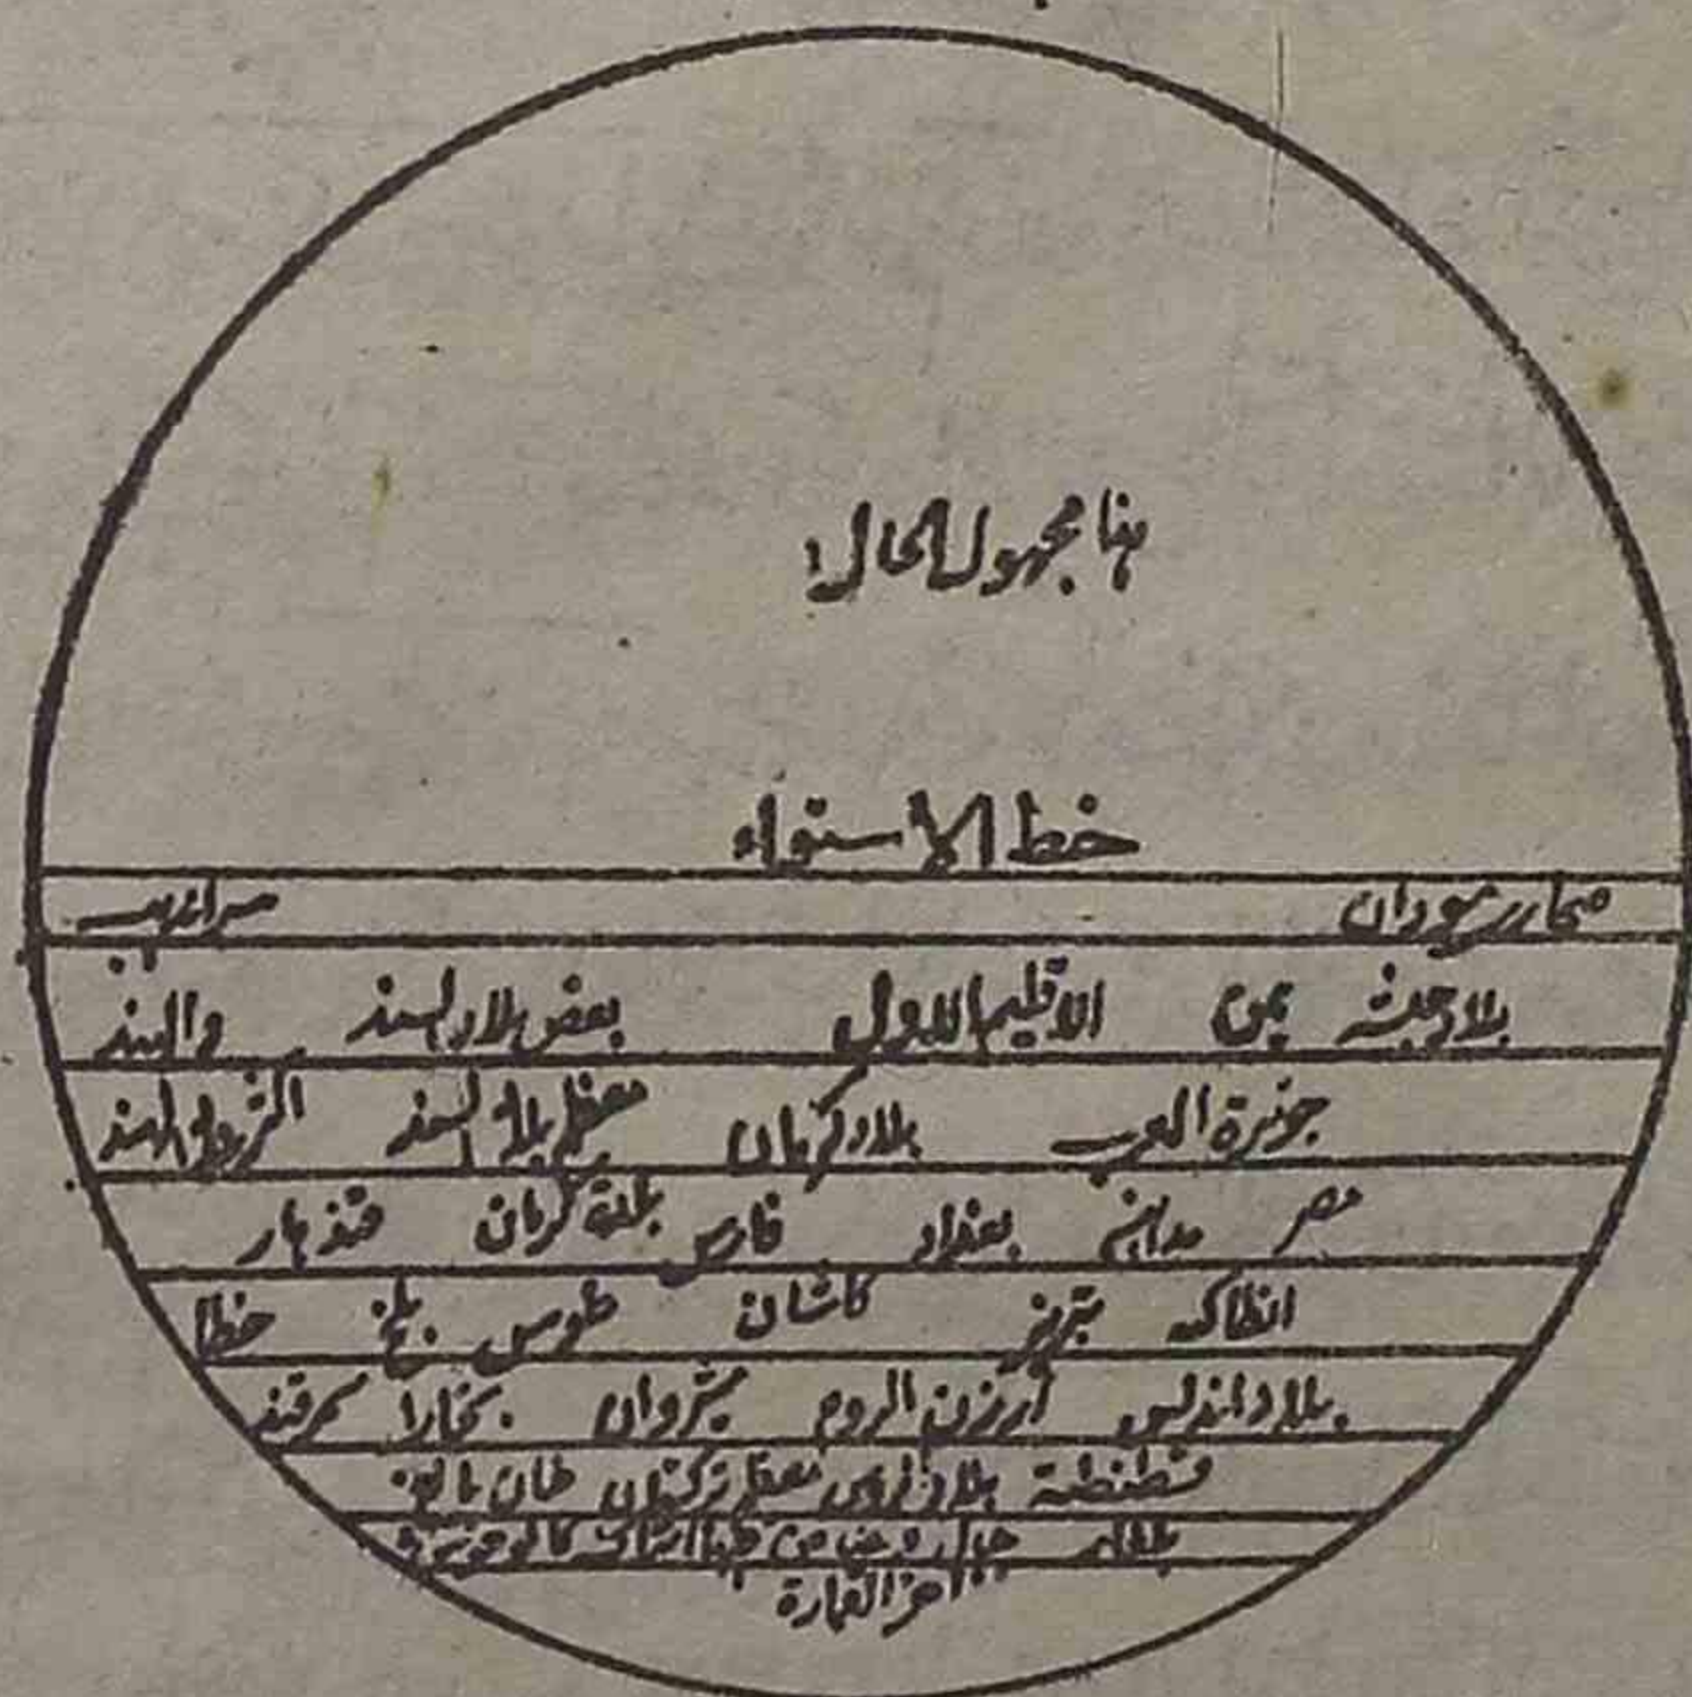 هنا مجهول الحال
خط الاستواء
سودان سراندیب
بلاد حبشه یمن الاقلیم الاول بعض بلاد السند والهند
جزیرة العرب بلاد کرمان معظم بلاد السند الهند
مصر مداین بغداد فارس بلدة کرمان قندهار
انطاکیه تبریز کاشان طوس بلخ خطا
بلاد اندلس ارزن الروم شروان بخارا سمرقند
بلاد معظم ترکستان خان بالیغ
جبال
آخر العمارة